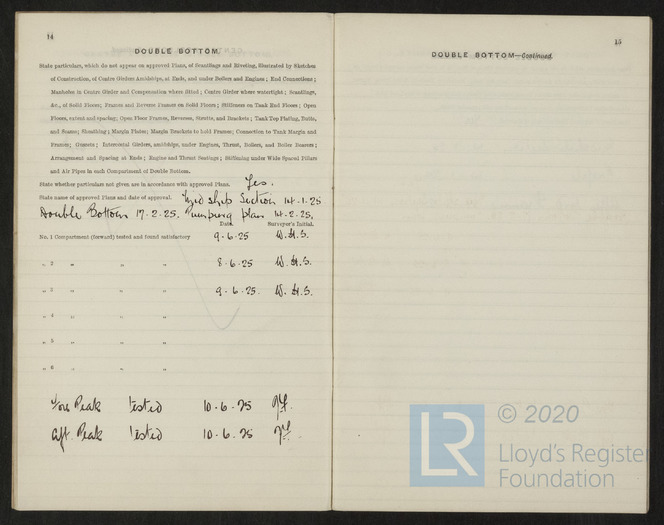 14
DOUBLE BOTTOM.
State particulars, which do not appear on approved Plans, of Scantlings and Riveting, illustrated by Sketches
of Construction, of Centre Girders Amidships, at Ends, and under Boilers and Engines; End Connections;
Manholes in Centre Girder and Compensation where fitted; Centre Girder where watertight; Scantlings,
&c., of Solid Floors; Frames and Reverse Frames on Solid Floors; Stiffeners on Tank End Floors; Open
Floors, extent and spacing; Open Floor Frames, Reverses, Struts, and Brackets; Tank Top Plating, Butts,
and Seams; Sheathing; Margin Plates; Margin Brackets to hold Frames; Connection to Tank Margin and
Frames; Gussets; Intercostal Girders, amidships, under Engines, Thrust, Boilers, and Boiler Bearers;
Arrangement and Spacing at Ends; Engine and Thrust Seatings; Stiffening under Wide Spaced Pillars
and Air Pipes in each Compartment of Double Bottom.
State whether particulars not given are in accordance with approved Plans. Yes.
State name of approved Plans and date of approval. Midship Section 14.1.25
Double Bottom 17.2.25. Pumping plan 14.2.25.
Date. Surveyor's Initial.
No. 1 Compartment (forward) tested and found satisfactory 9.6.25 W.H.S.
" 2 " " " 8.6.25 W.H.S.
" 3 " " " 9.6.25 W.H.S.
" 4 " " "
" 5 " " "
" 6 " " "
Fore Peak Tested 10.6.25
Aft. Peak Tested 10.6.25
15
DOUBLE BOTTOM—Continued.
LR
© 2020
Lloyd's Register
Foundation